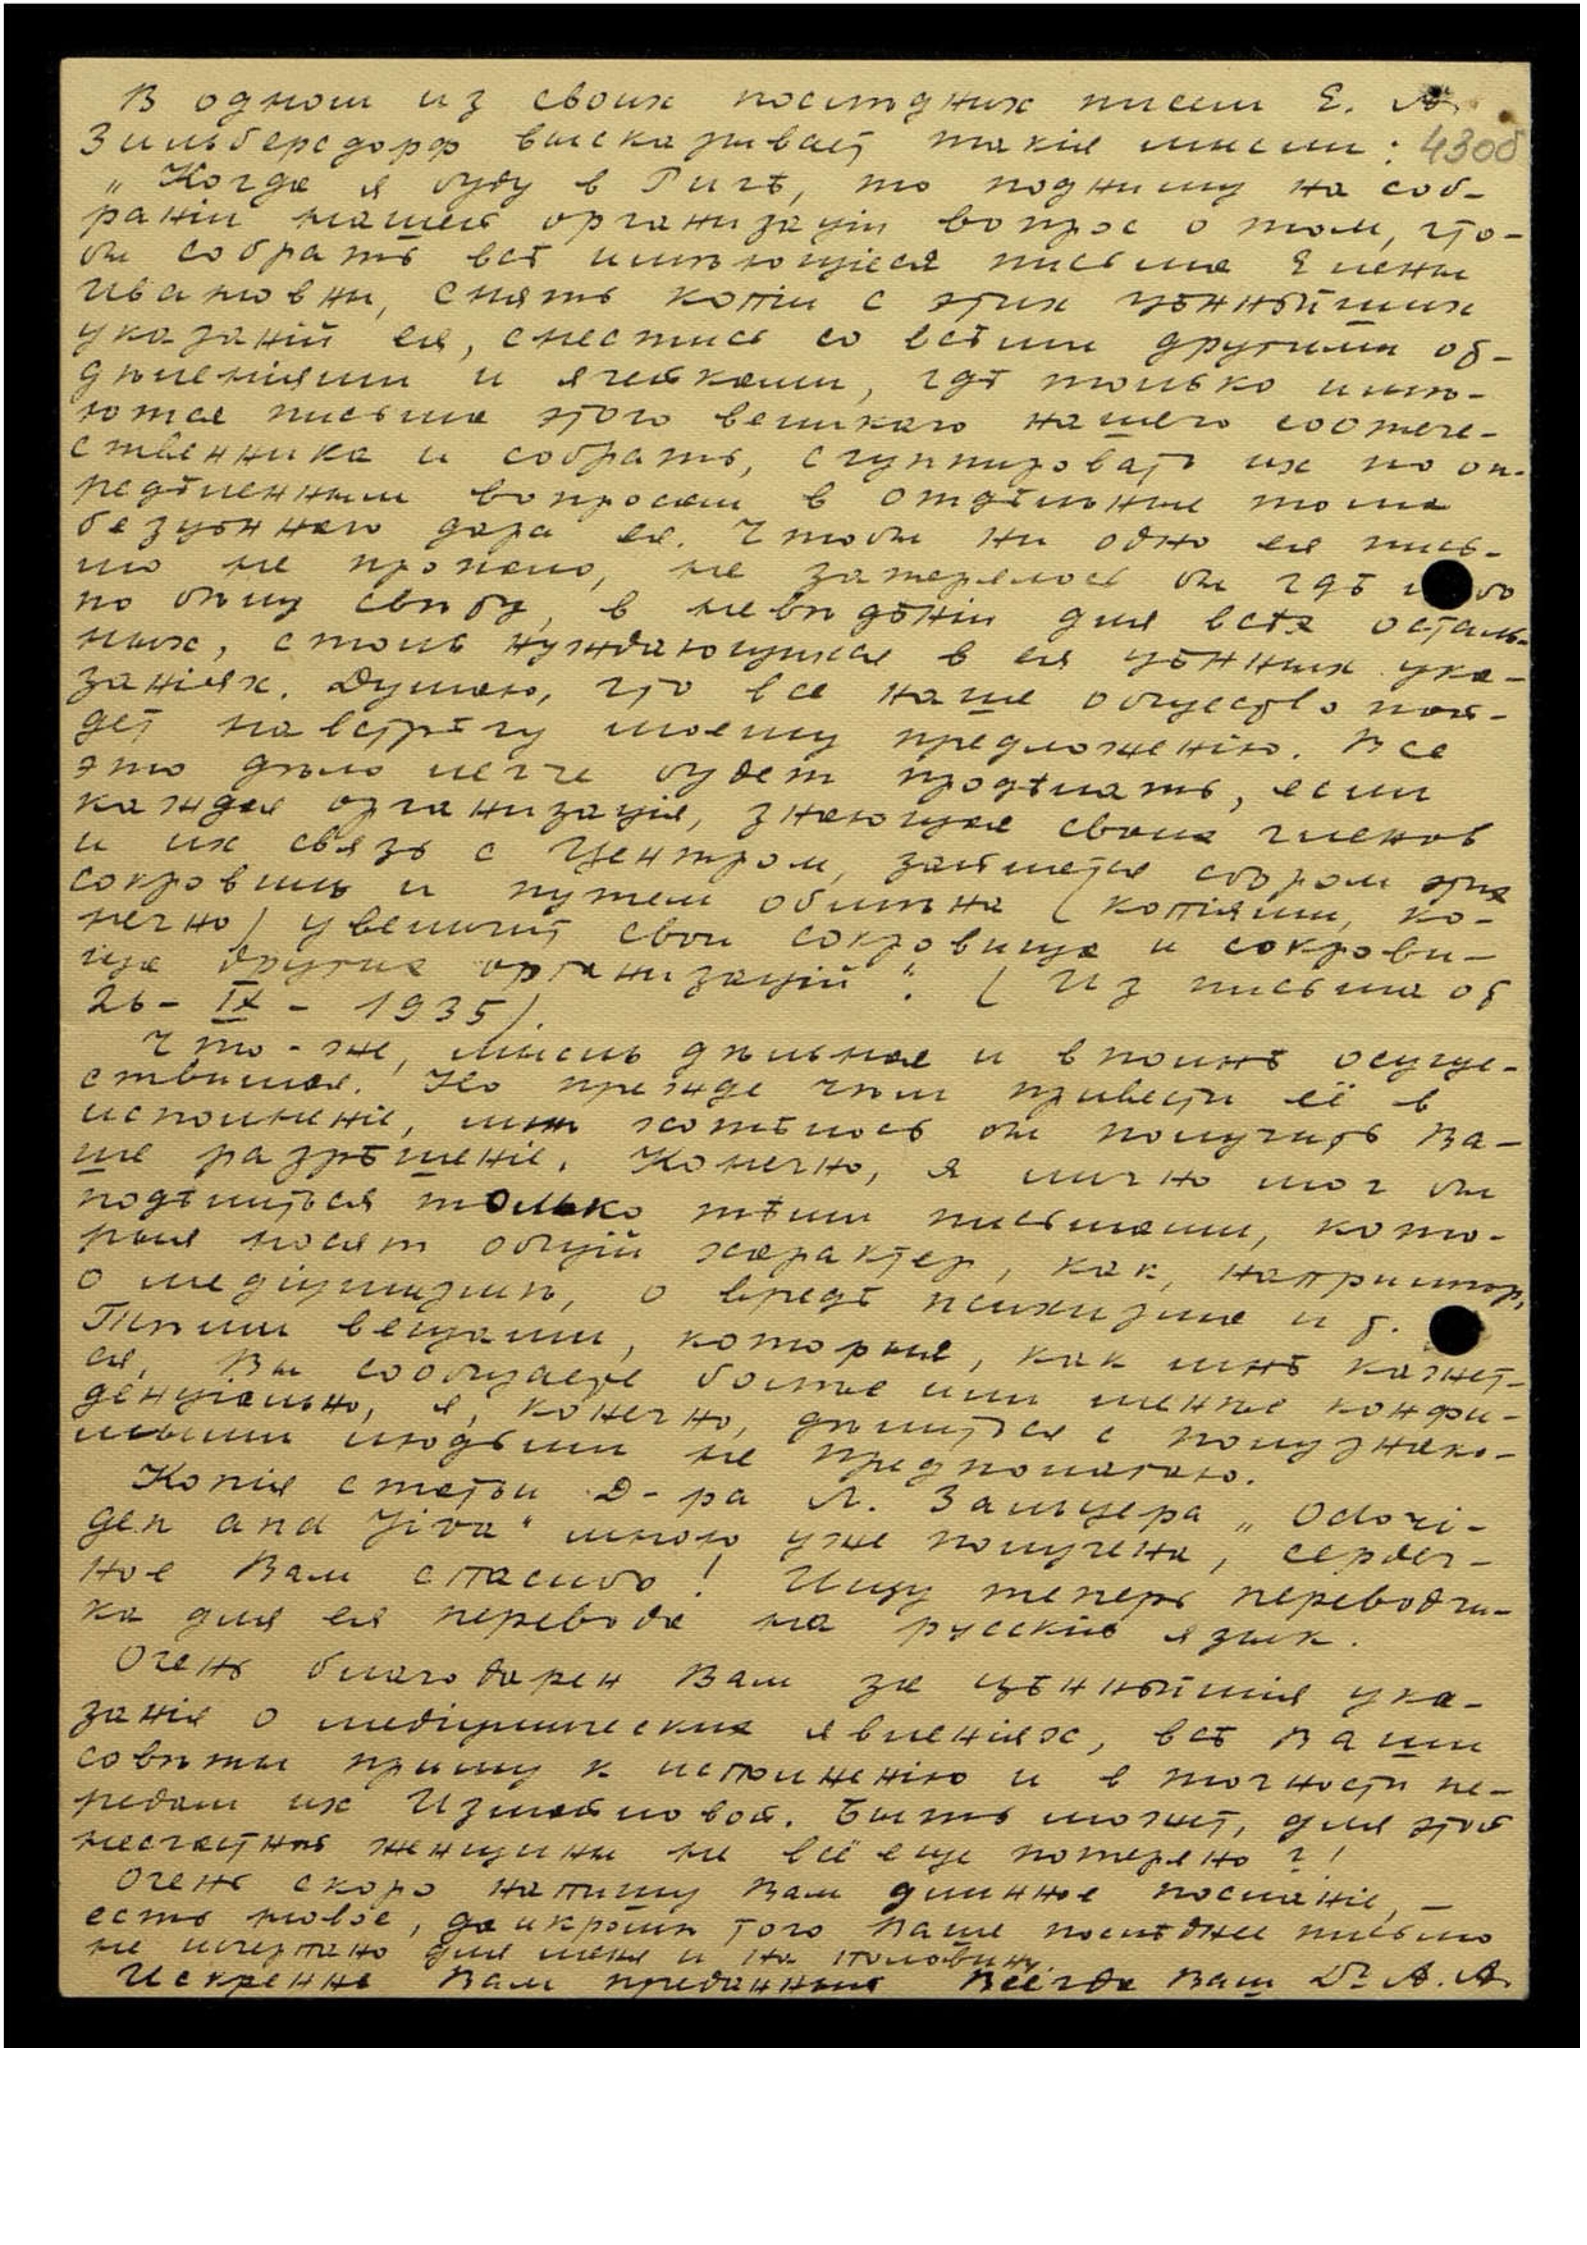 В одном из своих последних писем Е. А.
Зильберсдорф высказывает такія мысли: 430б
„Когда я буду в Ригѣ, то подниму на соб-
раніи нашей организаціи вопрос о том, что-
бы собрать всѣ имѣющіеся письма Елены
Ивановны, снять копіи с этих цѣннѣйших
указаній ея, снестись со всѣми другими от-
дѣленіями и ячейками, гдѣ только имѣ-
ются письма этого великаго нашего соотече-
ственника и собрать, сгруппировать их по оп-
редѣленным вопросам в отдѣльные тома
безцѣннаго дара ея. Чтобы ни одно ея пись-
мо не пропало, не затерялось бы гдѣ либо
по бѣлу свѣту, в невидѣніи для всѣх осталь-
ных, столь нуждающихся в ея цѣнных ука-
заніях. Думаю, что все наше общество пой-
дет навстрѣчу моему предложенію. Все
это дѣло легче будет продѣлать, если
каждая организація, знающая своих членов
и их связь с Центром, займется сбором этих
сокровищ и путем обмѣна (копіями, ко-
нечно) увеличит свои сокровища и сокрови-
ща других организацій“. (Из письма от
26 - IX - 1935).
Что-же, мысль дѣльная и вполнѣ осуще-
ствимая. Но прежде чѣм привести её в
исполненіе, мнѣ хотѣлось бы получить Ва-
ше разрѣшеніе. Конечно, я лично мог бы
подѣлиться только тѣми письмами, кото-
рыя носят общій характер, как, напримѣр,
о медіумизмѣ, о вредѣ психизма и т.
Тѣми вещами, которые, как мнѣ кажет-
ся, Вы сообщаете болѣе или менѣе конфи-
денціально, я, конечно, дѣлиться с полузнако-
мыми людьми не предполагаю.
Копія статьи Д-ра Л. Зальцера „Odori-
gen and Jiva“ мною уже получена, сердеч-
ное Вам спасибо! Ищу теперь переводчи-
ка для ея перевода на русскій язык.
Очень благодарен Вам за цѣннѣйшія ука-
занія о медіумических явленіях, всѣ Ваши
совѣты приму к исполненію и в точности пе-
редам их Измайловой. Быть может, для этой
несчастной женщины не всё еще потеряно?!
Очень скоро напишу Вам длинное посланіе, –
есть новое, да и кромѣ того Ваше послѣднее письмо
не исчерпано для меня и на половину.
Искренно Вам преданный Всегда Ваш Dr А. А.